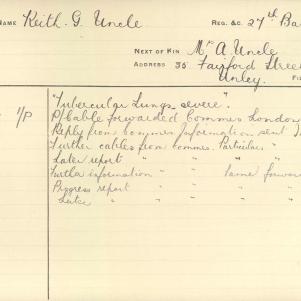 NAME Keith. G. Uncle REG. &C. 27th Ba
NEXT OF KIN Mr A Uncle
ADDRESS 35 Fairford Stree
Unley.
1/P "Tubercular Lungs severe".
P/Cable forwarded Commes London
Reply from Commes Information sent
Further cables from commes. Particulars "
Later report " " "
Further information " " Same forwar
Progress report " "
Later " " "